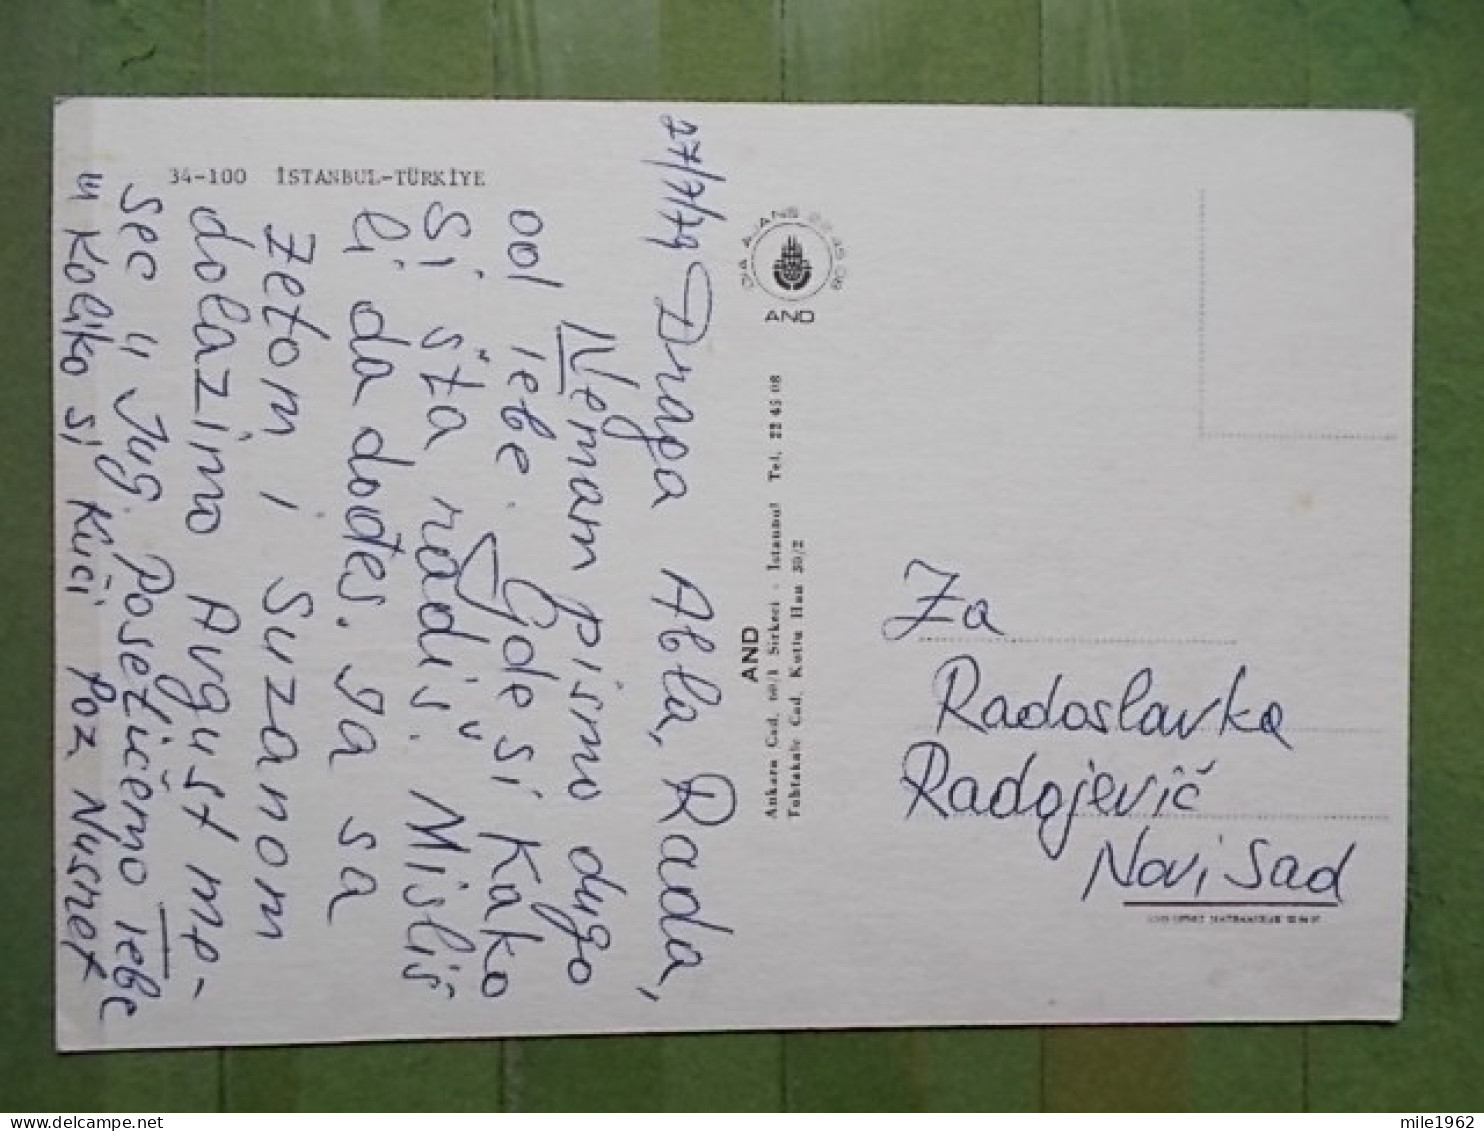 34-100 İSTANBUL-TÜRKİYE
27/7/79
Draga Abla, Rada,
Nemam pismo dugo
od tebe. Gde si Kako
si šta radiš. Misliš
li da dođes. Ja sa
zetom i Suzanom
dolazimo Avgust me-
sec u Jug. Posetićemo tebe
u Koliko si Kući Poz Nusret
AND
AND
Ankara Cad. 60/1 Sirkeci - İstanbul Tel. 22 45 08
Tahtakale Cad. Kutlu Han 30/2
Za
Radoslavka
Radojević
Novi Sad
mile1962